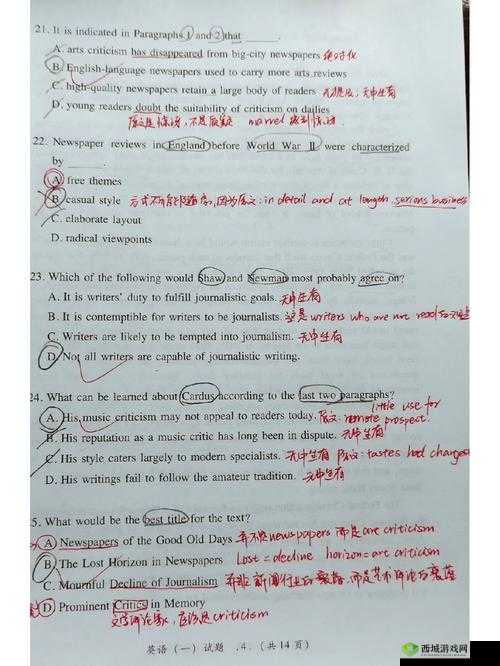 21. It is indicated in Paragraphs 1 and 2 that
A. arts criticism has disappeared from big-city newspapers 绝对化
B. English-language newspapers used to carry more arts reviews
C. high-quality newspapers retain a large body of readers 无中生有
D. young readers doubt the suitability of criticism on dailies
原文是惊讶,不是质疑 marvel
22. Newspaper reviews in England before World War II were characterized
by
A. free themes
B. casual style 因为原文: in detail and at length serious business
C. elaborate layout
D. radical viewpoints
23. Which of the following would Shaw and Newman most probably agree on?
A. It is writers' duty to fulfill journalistic goals. 无中生有
B. It is contemptible for writers to be journalists. 这是writers who are not
C. Writers are likely to be tempted into journalism. 无中生有
D. Not all writers are capable of journalistic writing.
24. What can be learned about Cardus according to the last two paragraphs?
A. His music criticism may not appeal to readers today. 原文: little use for
remote prospect.
B. His reputation as a music critic has long been in dispute. 无中生有
C. His style caters largely to modern specialists. 无中生有 原文: tastes had changed
D. His writings fail to follow the amateur tradition. 无中生有
5. What would be the best title for the text?
A. Newspapers of the Good Old Days 并不是newspapers 而是are criticism
B. The Lost Horizon in Newspapers Lost=decline horizon=art criticism
C. Mournful Decline of Journalism 并非新闻行业的衰落,而是艺术评论的衰落
D. Prominent Critics in Memory
文学评论家,应该是criticism
英语(一)试题 .4.(共14页)
西城游戏网